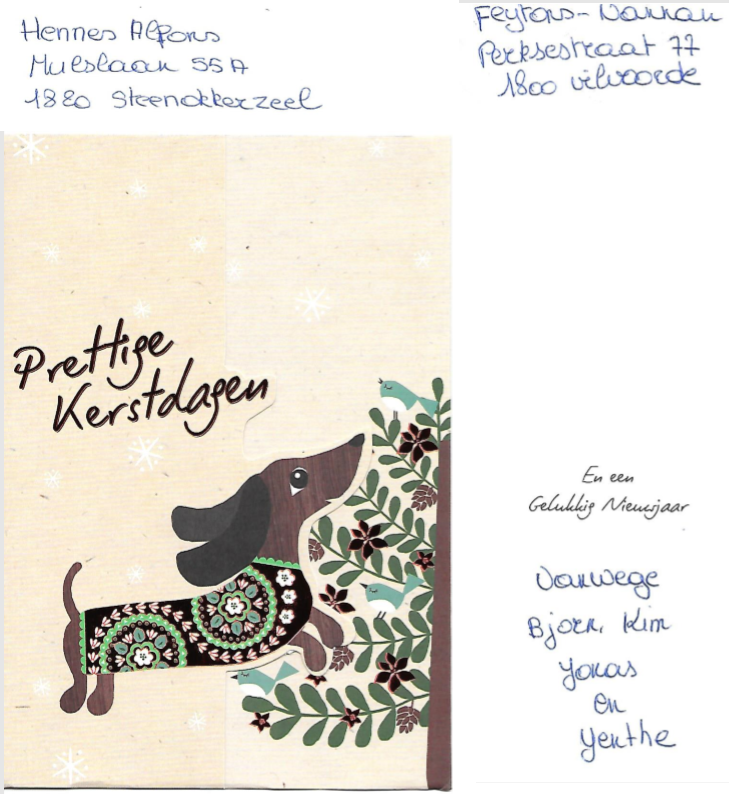 Hennes Alfons
Mulslaan 55A
1820 Steenokkerzeel
Feytons-
Perksestraat 77
1800 vilvoorde
Prettige
Kerstdagen
En een
Gelukkig Nieuwjaar
Vanwege
Bjorn, Kim
Yonas
en
Yenthe